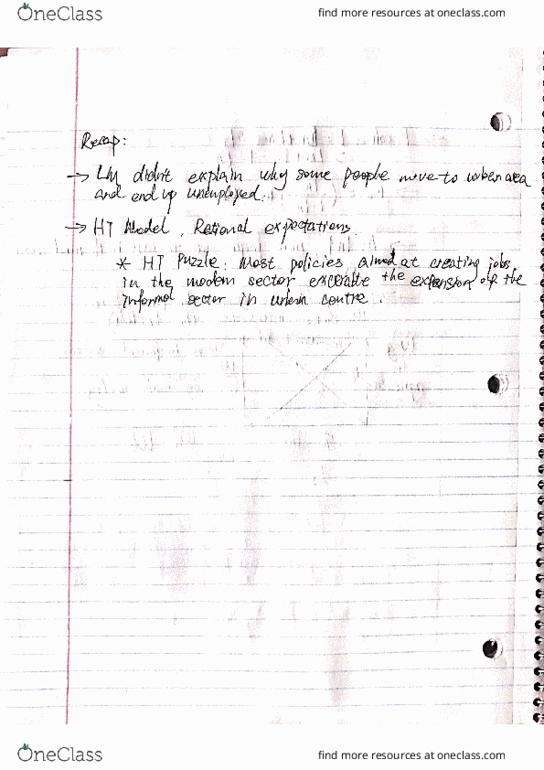 OneClass
find more resources at oneclass.com
Recap:
→ LM didn't explain why some people move to urban area
and end up unemployed.
→ HT Model, Rational expectations.
* HT Puzzle: Most policies aimed at creating jobs
in the modern sector the expansion of the
informal sector in urban centre.
OneClass
find more resources at oneclass.com